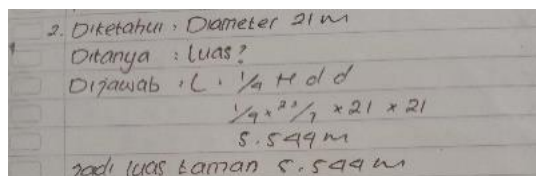 2. Diketahui : Diameter 21 m
Ditanya : Luas?
Dijawab : L : 1/4 π d d
1/4 × 22/7 × 21 × 21
5.544 m
Jadi luas taman 5.544 m